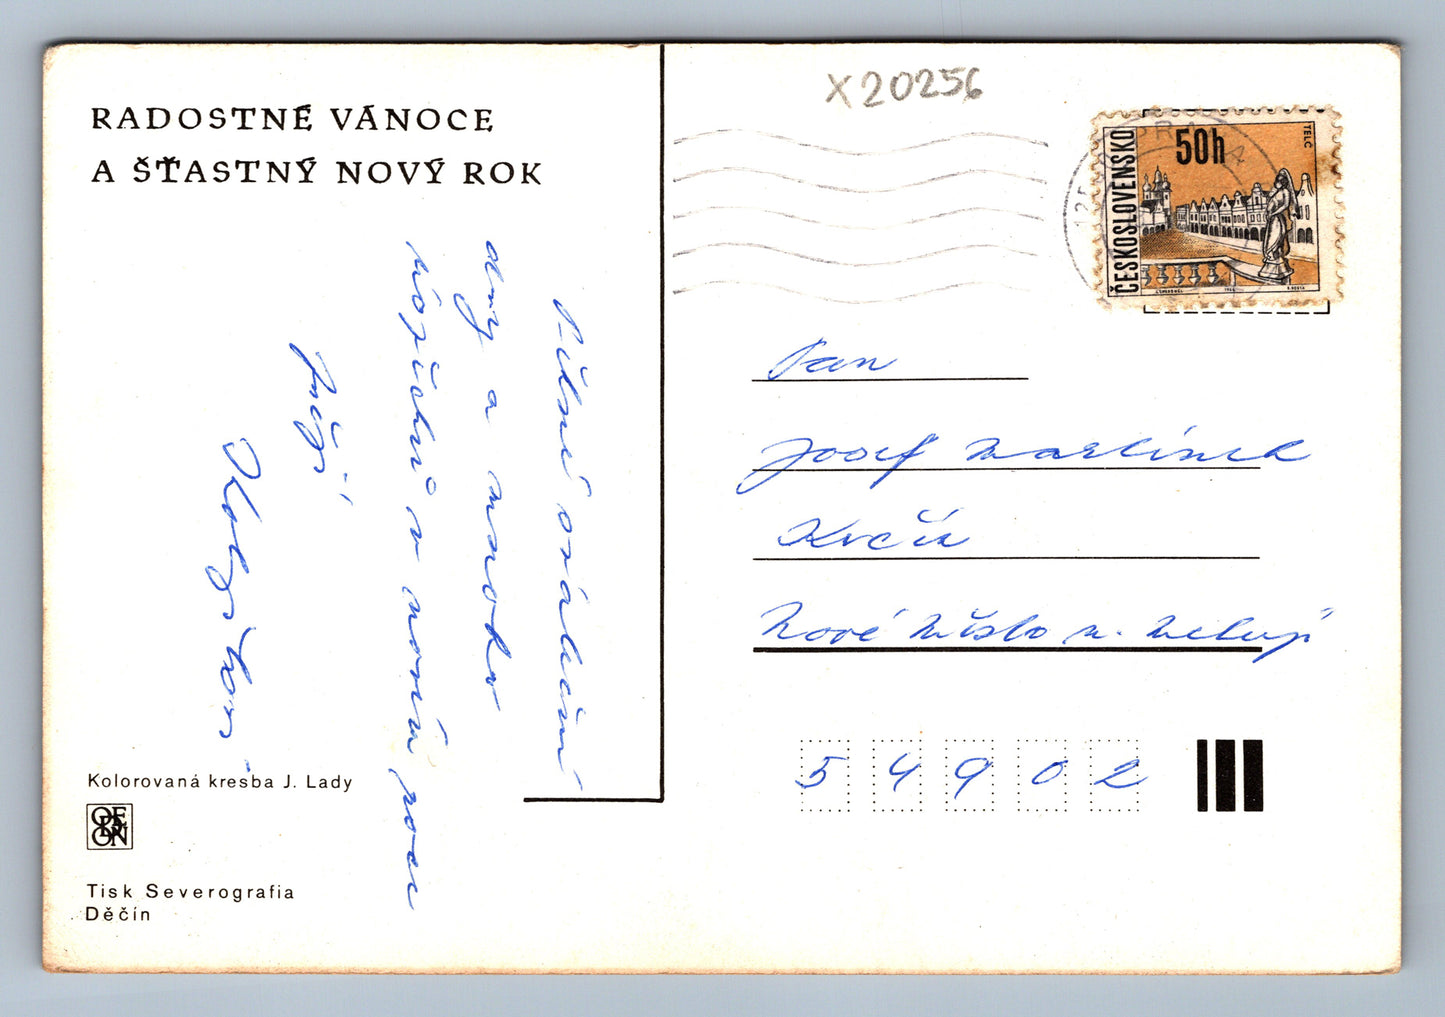 RADOSTNÉ VÁNOCE
A ŠŤASTNÝ NOVÝ ROK
Pěkné vánoční
dny a mnoho
úspěchů v novém roce
přejí
Kolorovaná kresba J. Lady
ODEON
Tisk Severografia
Děčín
X20256
ČESKOSLOVENSKO
50h
TELČ
Pan
Josef Martínek
Krčín
Nové Město n. Metují
54902